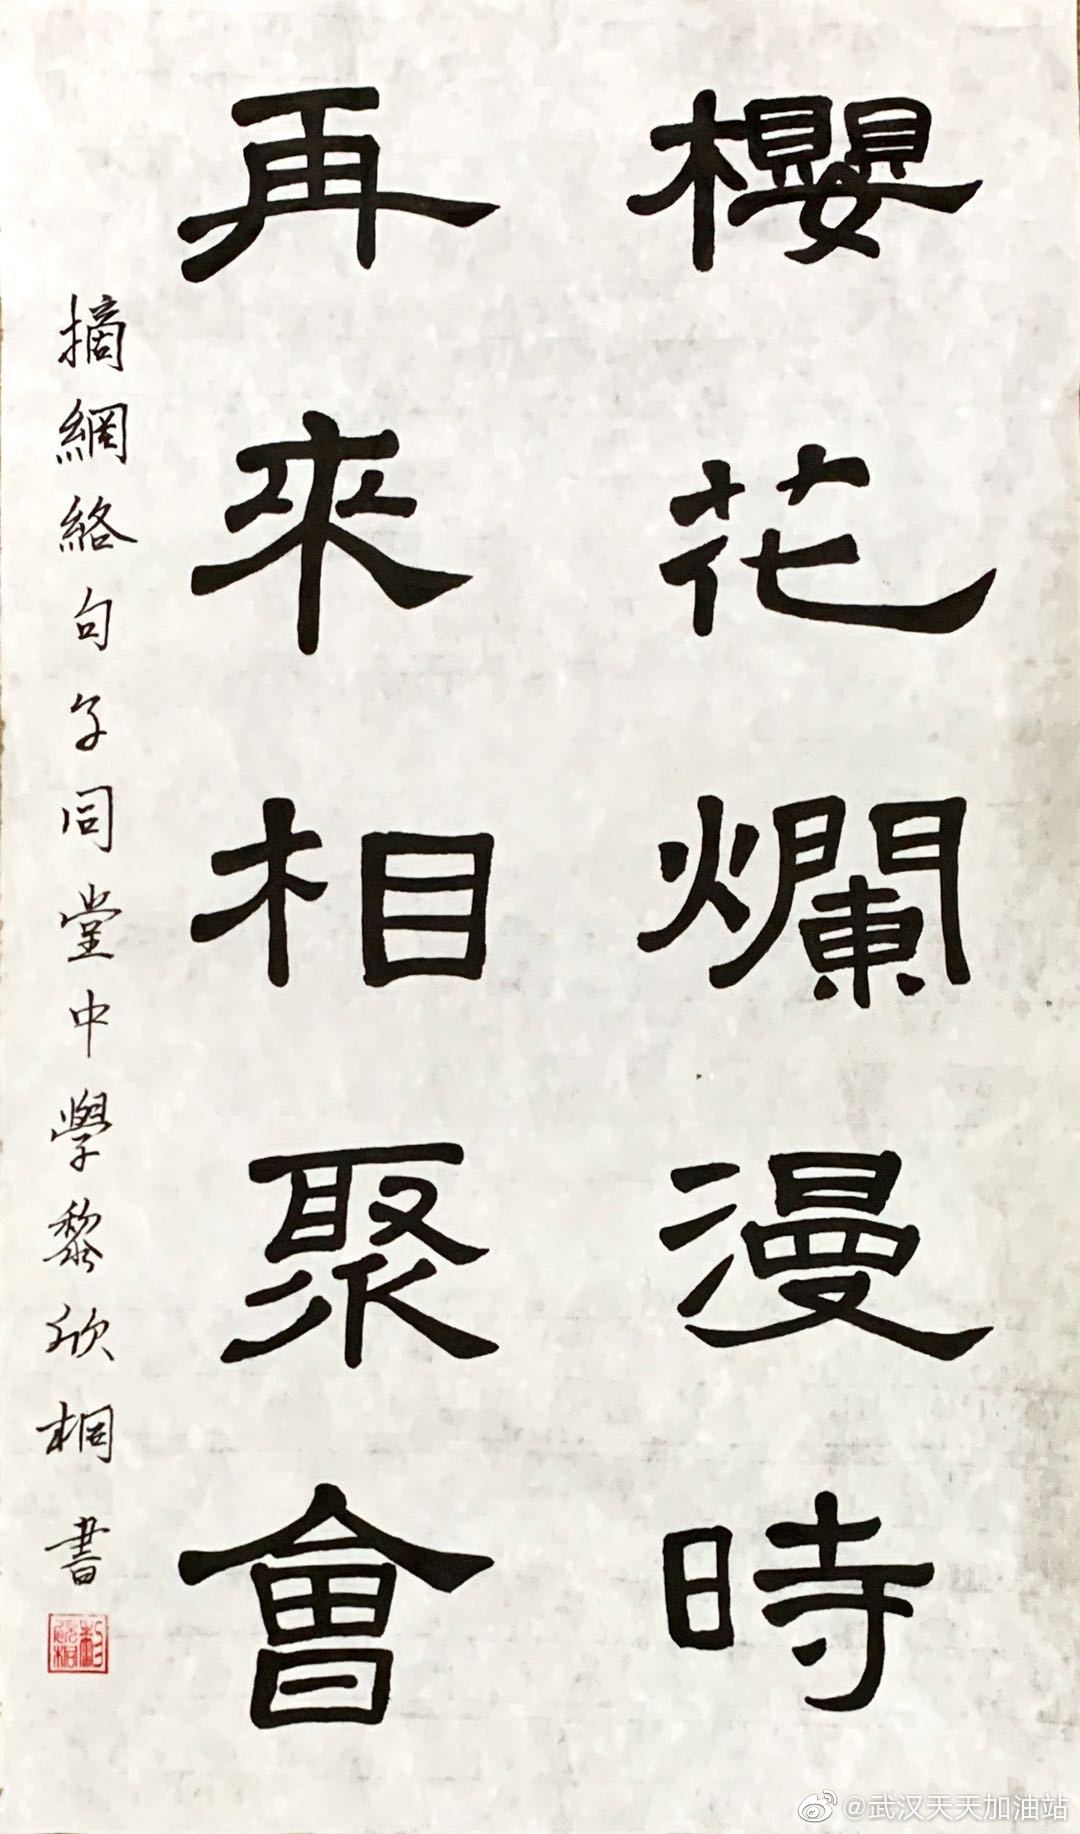 櫻花爛漫時
再來相聚會
摘網絡句子同堂中學黎欣桐書
@武汉天天加油站